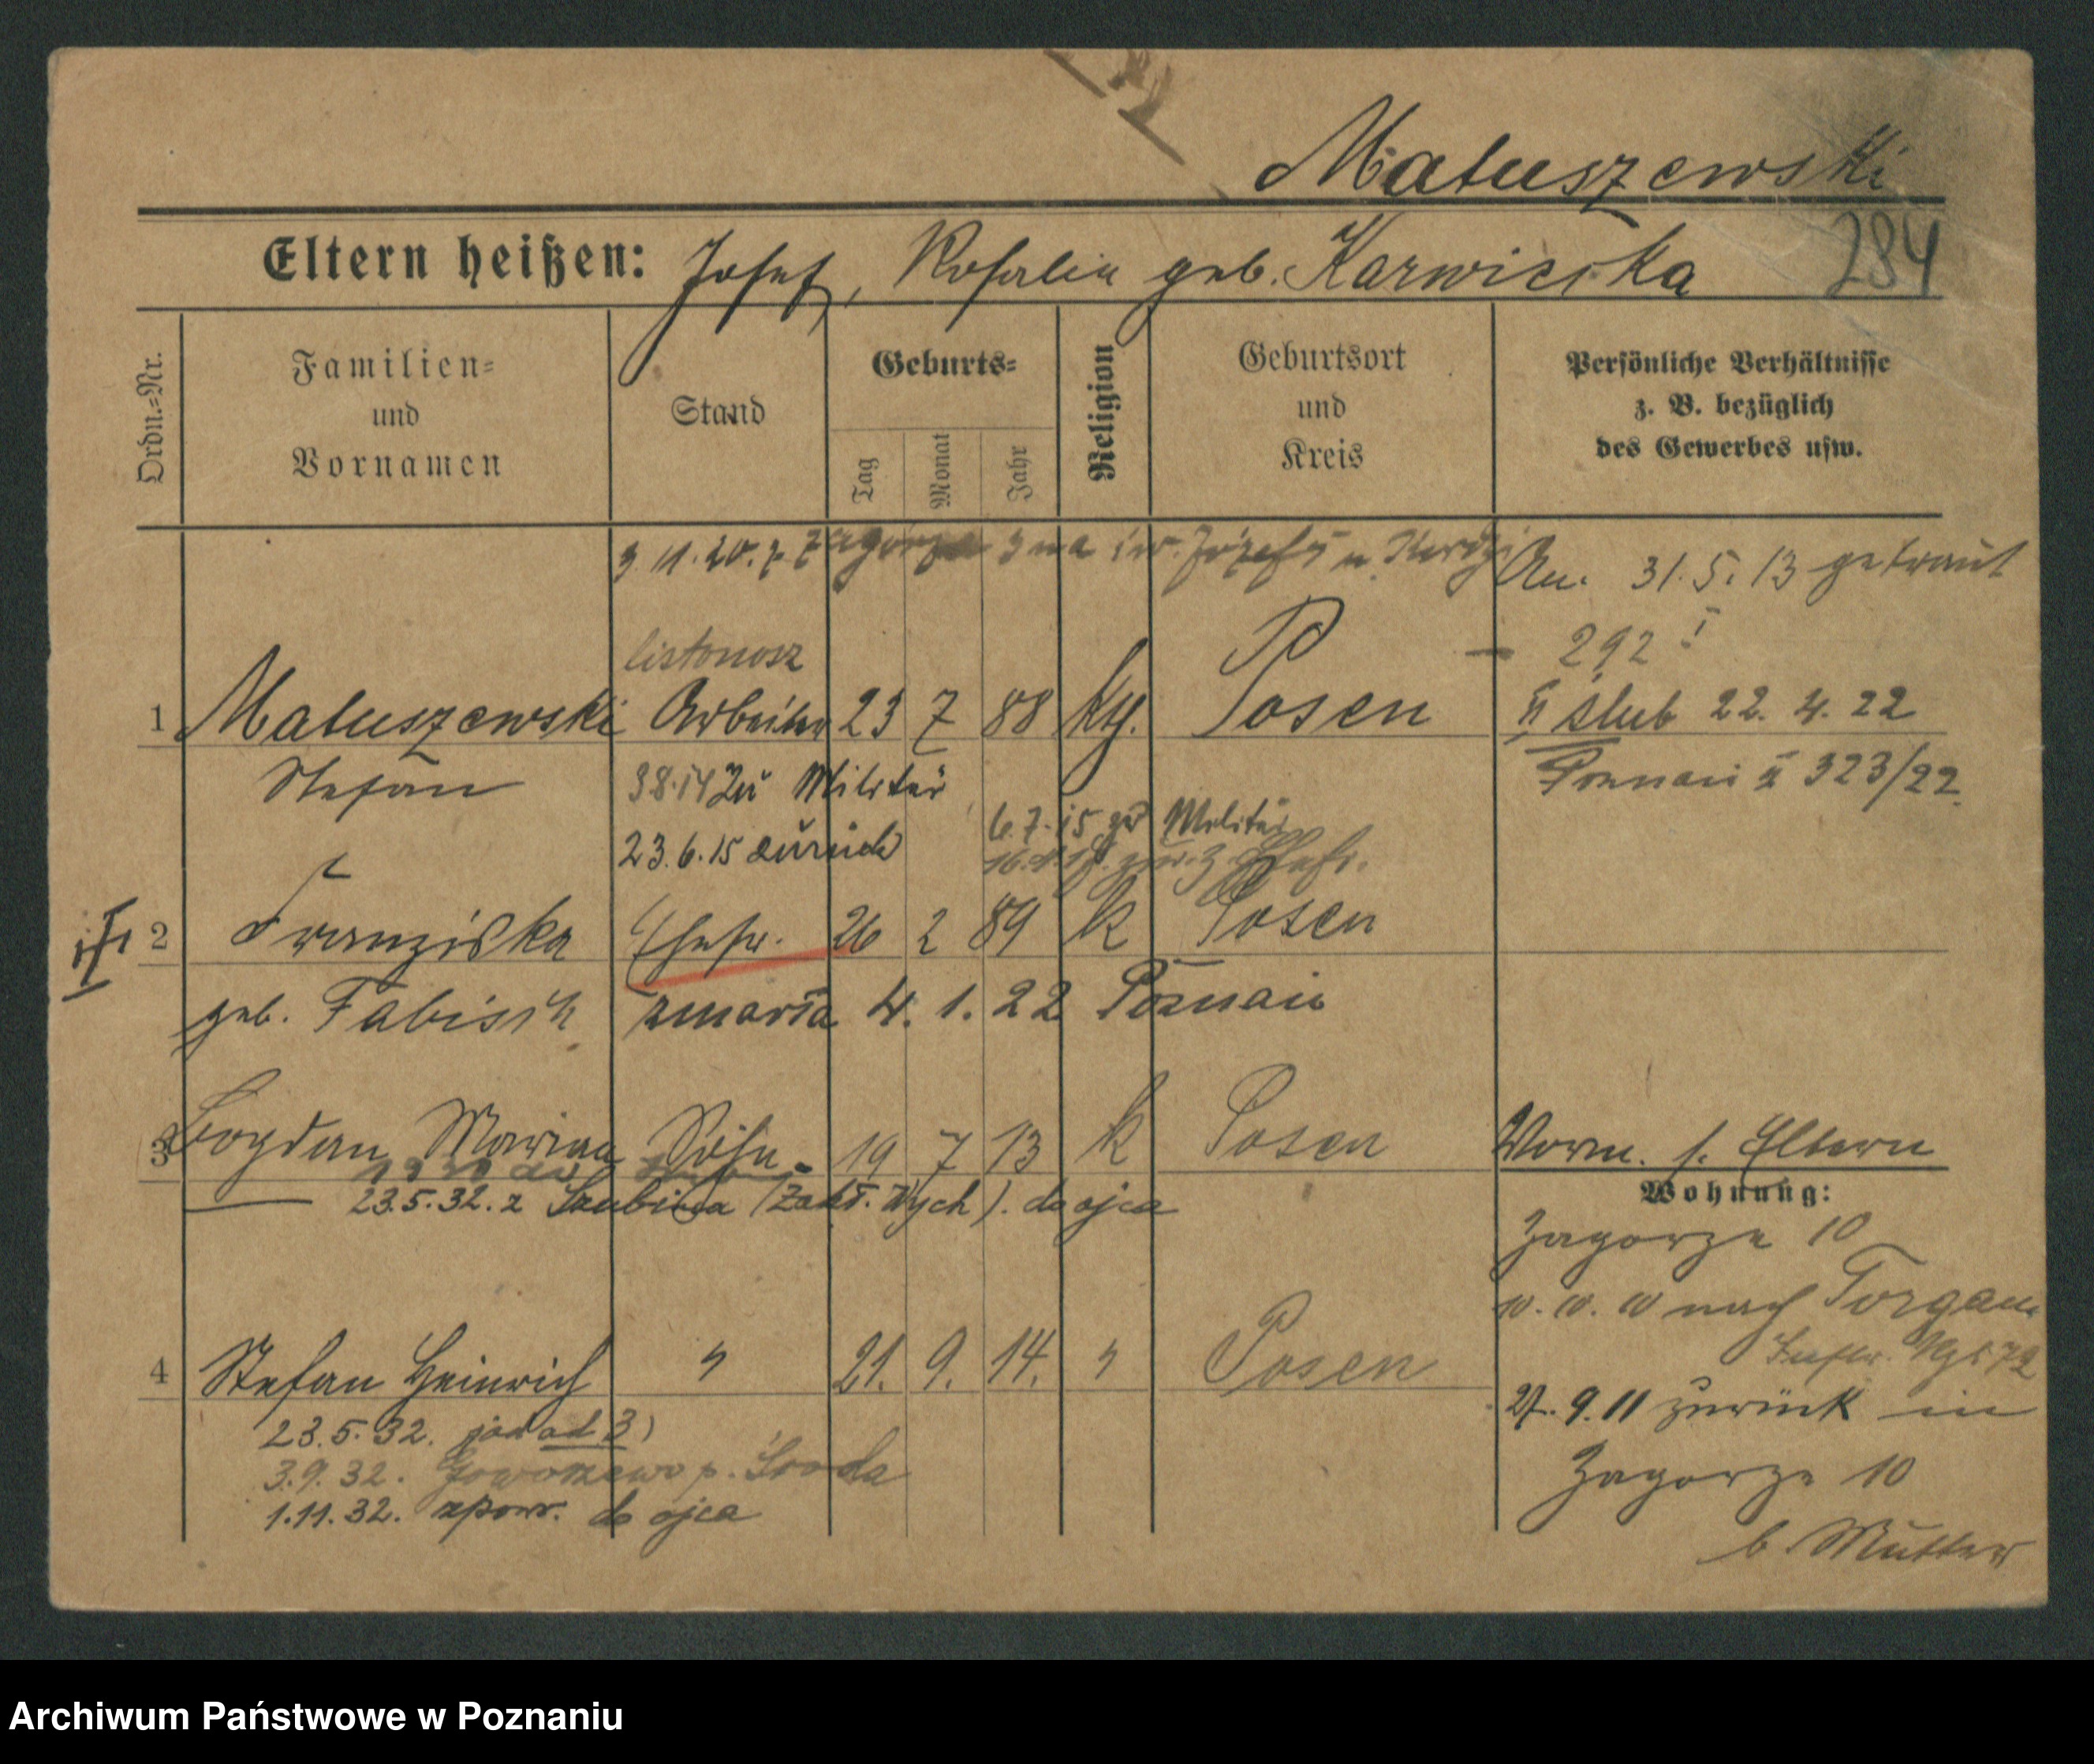 Matuszewski
284
Eltern heißen: Josef, Rosalia geb. Karwicka
Ordn.=Nr.
Familien=
und
Vornamen
Stand
Geburts=
Tag
Monat
Jahr
Religion
Geburtsort
und
Kreis
Persönliche Verhältnisse
z. B. bezüglich
des Gewerbes usw.
3.11.20. z Zagórza 3 na św. Józefa
Au. 31.5.13 getraut
listonosz
P
— 292 I
1 Matuszewski Arbeiter 23 7 88 kth. Posen
II ślub 22. 4. 22
Stefan
3.8.14 Zu Militär
Poznań II 323/22
23.6.15 zurück
6.7.15 zu Militär
2 Franziska Ehefr. 26 2 89 k Posen
geb. Fabisch
zmarła 4. 1. 22 Poznań
3 Bogdan Marian Sohn 19 7 13 k Posen
Worm. s. Eltern
23.5.32. z (Zakł. Wych). do ojca
Wohnung:
Zagorze 10
10. 10. 10 nach Torgau
Inftr. Rgt 72
4 Stefan Heinrich " 21. 9. 14. " Posen
27. 9. 11 zurück in
23.5.32. jak ad 3)
3.9.32. p. Środa
Zagorze 10
1.11.32. zpowr. do ojca
b. Mutter
Archiwum Państwowe w Poznaniu